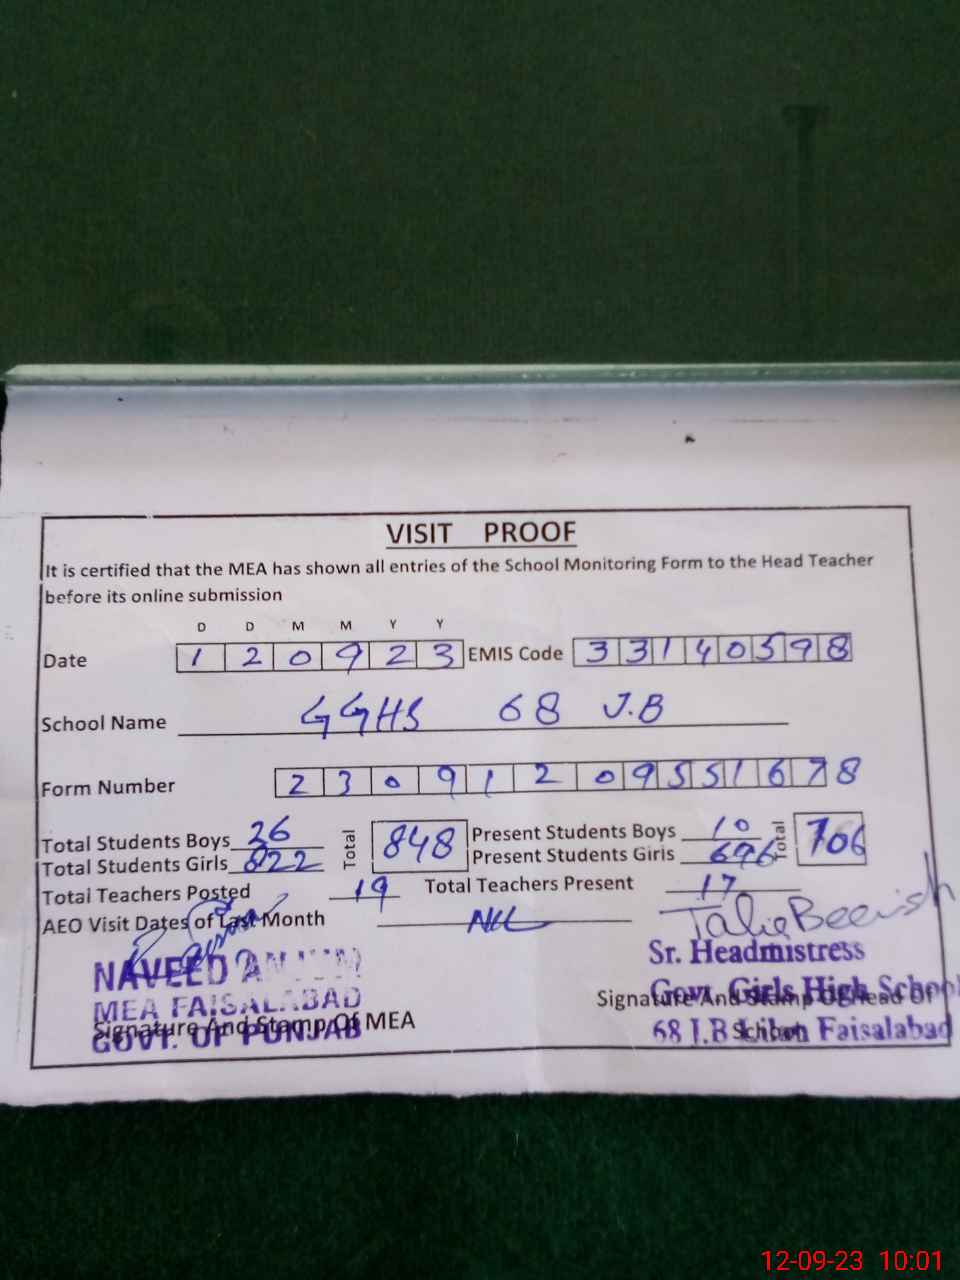 VISIT PROOF
It is certified that the MEA has shown all entries of the School Monitoring Form to the Head Teacher
before its online submission
D D M M Y Y
Date 1 2 0 9 2 3 EMIS Code 3 3 1 4 0 5 9 8
School Name GGHS 68 J.B
Form Number 2 3 0 9 1 2 0 9 5 5 1 6 7 8
Total Students Boys 26 Total 848 Present Students Boys 10 Total 706
Total Students Girls 822 Present Students Girls 696
Total Teachers Posted 19 Total Teachers Present 17
AEO Visit Dates of Last Month Nil
Sr. Headmistress
NAVEED ANJUM
Govt. Girls High School
MEA FAISALABAD
Signature And Stamp Of Head Of
School
Signature And Stamp Of MEA
GOVT. OF PUNJAB
68 J.B Faisalabad
12-09-23 10:01